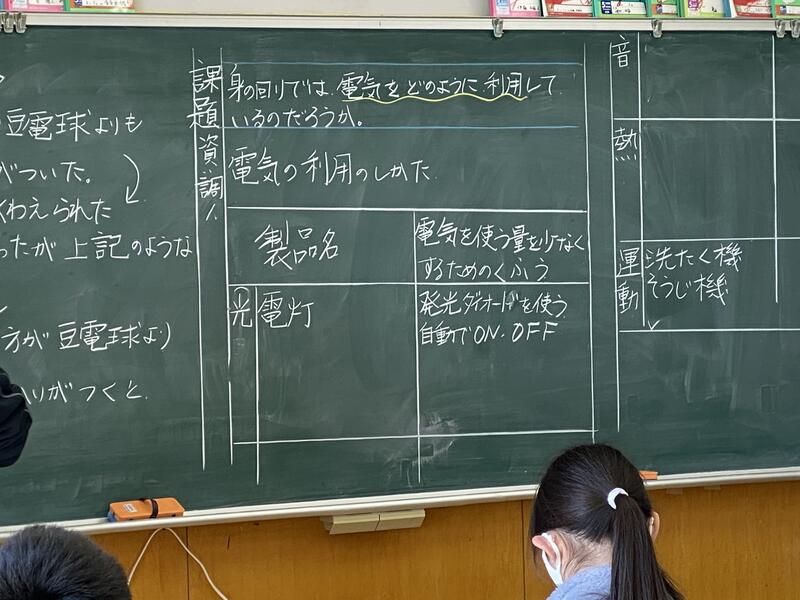 豆電球よりも
がついた。
くわえられた
ったが上記のような
方が豆電球より
がつくと
課題
身の回りでは、電気をどのように利用して
いるのだろうか。
資調
電気の利用のしかた
製品名
電気を使う量を少なく
するためのくふう
光
電灯
発光ダイオードを使う
自動でON・OFF
音
熱
運動
洗たく機
そうじ機